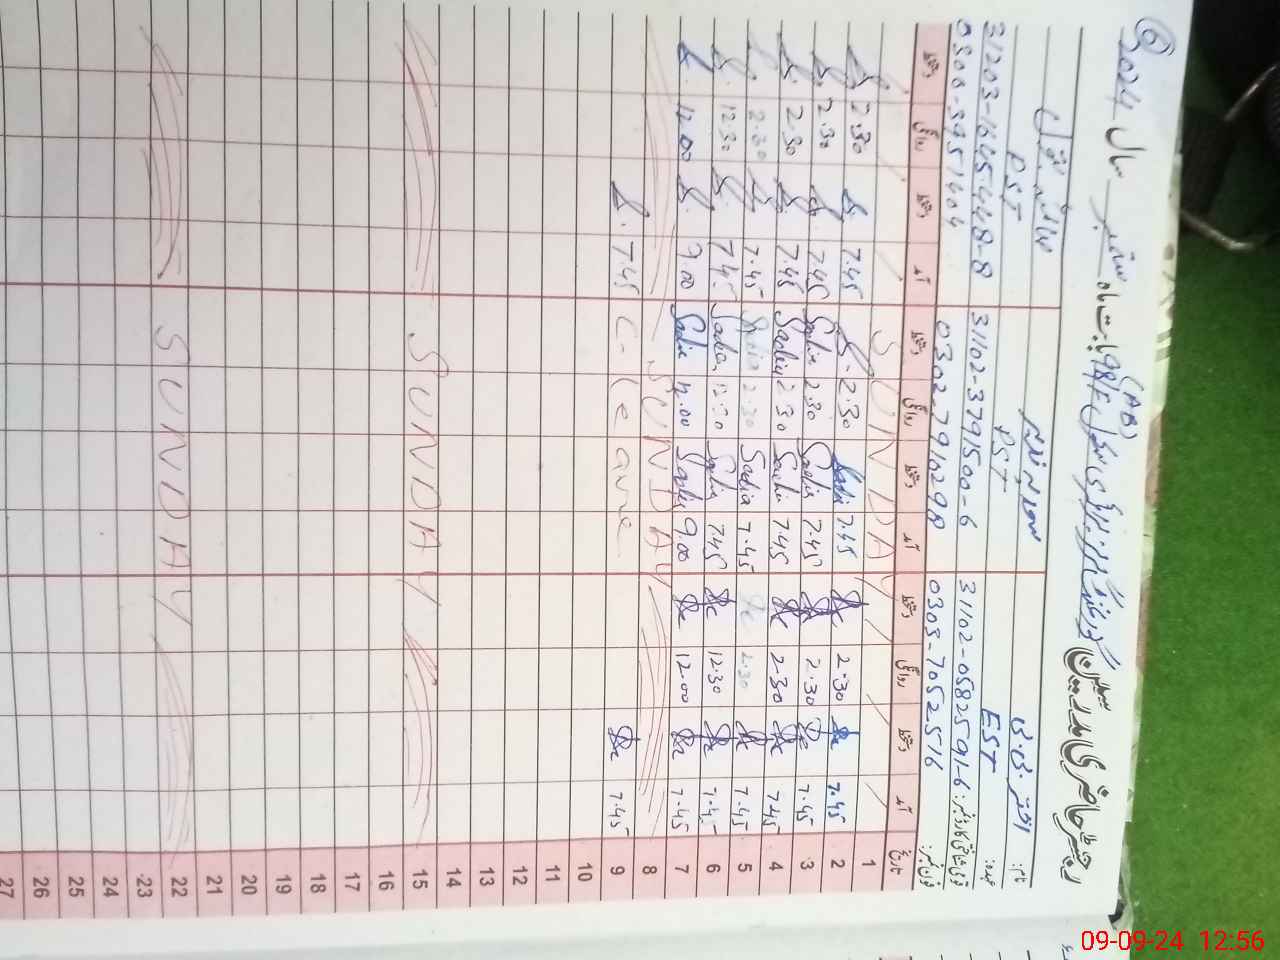 رجسٹر حاضری مدرسین گورنمنٹ گرلز پرائمری سکول 98/F بابت ماہ ستمبر سال 2024 6
(AB)
نام: اختر بی بی سعدیہ نذیر
عہدہ: EST PST PST
قومی شناختی کارڈ نمبر: 31102-0582591-6 31102-3791500-6 31203-1645448-8
فون نمبر: 0303-7052516 0302-7910298 0300-3951404
تاریخ آمد دستخط روانگی دستخط آمد دستخط روانگی دستخط آمد دستخط روانگی دستخط
1 SUNDAY
2 7.45 2.30 7.45 Sadia 2.30 7.45 2.30
3 7.45 2.30 7.45 Sadia 2.30 Sadia 7.45 2.30
4 7.45 2.30 7.45 Sadia 2.30 Sadia 7.45 2.30
5 7.45 2.30 7.45 Sadia 2.30 Sadia 7.45 2.30
6 7.45 12.30 7.45 Sadia 12.30 Sadia 7.45 12.30
7 7.45 12.00 9.00 Sadia 12.00 Sadia 9.00 12.00
8 SUNDAY
9 7.45 C-leave 7.45
10
11
12
13
14
15 SUNDAY
16
17
18
19
20
21
22 SUNDAY
23
24
25
26
27
09-09-24 12:56